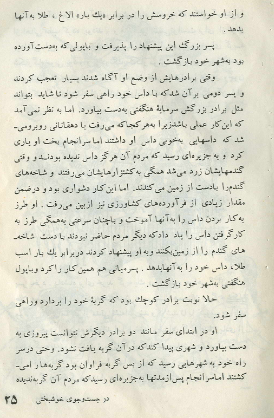 و از او خواستند که خروسش را در برابر یك باره الاغ ، طلا به‌آنها
بدهد .
پسر بزرگ این پیشنهاد را پذیرفت و باپولی‌که به‌دست‌آورده
بود به‌شهر خود بازگشت .
وقتی برادرهایش از وضع او آگاه شدند بسیار تعجب کردند
و پسر دومی بر آن شدکه با داس خود راهی سفر شود تا شاید بتواند
مثل برادر بزرگش سرمایهٔ هنگفتی به‌دست بیاورد. اما به نظر نمی‌آمد
که این‌کار عملی باشدزیرا به‌هرکجاکه می‌رفت با دهقانانی روبرومی-
شد که داسهایی به‌خوبی داس او داشتند اماسرانجام بخت او یاری
کرد و به جزیره‌ای رسید که مردم آن هرگز داس ندیده بودند و وقتی
گندمهایشان زرد می‌شد همگی به‌کشتزارهایشان می‌رفتند و شاخه‌های
گندم‌را بادست از زمین می‌کندند. اما این‌کار دشواری بود و درضمن
مقدار زیادی از فرآورده‌های کشاورزی نیز ازبین می‌رفت . او طرز
به‌کار بردن داس را به‌آنها آموخت و باچنان سرعتی به‌همگی طرز به
کارگرفتن داس را یاد دادکه دیگر مردم حاضر نبودند با دست شاخه
های گندم را از زمین‌بکنند و به او پیشنهاد کردند دربرابر یك بار اسب
طلا، داس خود را به‌آنهابدهد . پسرمیانی هم همین‌کار راکرد و باپول
هنگفتی به‌شهر خود بازگشت .
حالا نوبت برادر کوچك بود که گربهٔ خود را بردارد و راهی
سفر شود.
او در ابتدای سفر مانند دو برادر دیگرش نتوانست پیروزی به
دست بیاورد و شهری پیدا کندکه در آن گربه یافت نشود. وحتی درسر
راه خود به شهرهایی رسید که از بس گربه فراوان بود گربه‌ها را می-
کشتند اماسرانجام پس‌ازمدتها به‌جزیره‌ای رسیدکه مردم آن گربه‌ندیده
در جست‌وجوی خوشبختی ۲۵